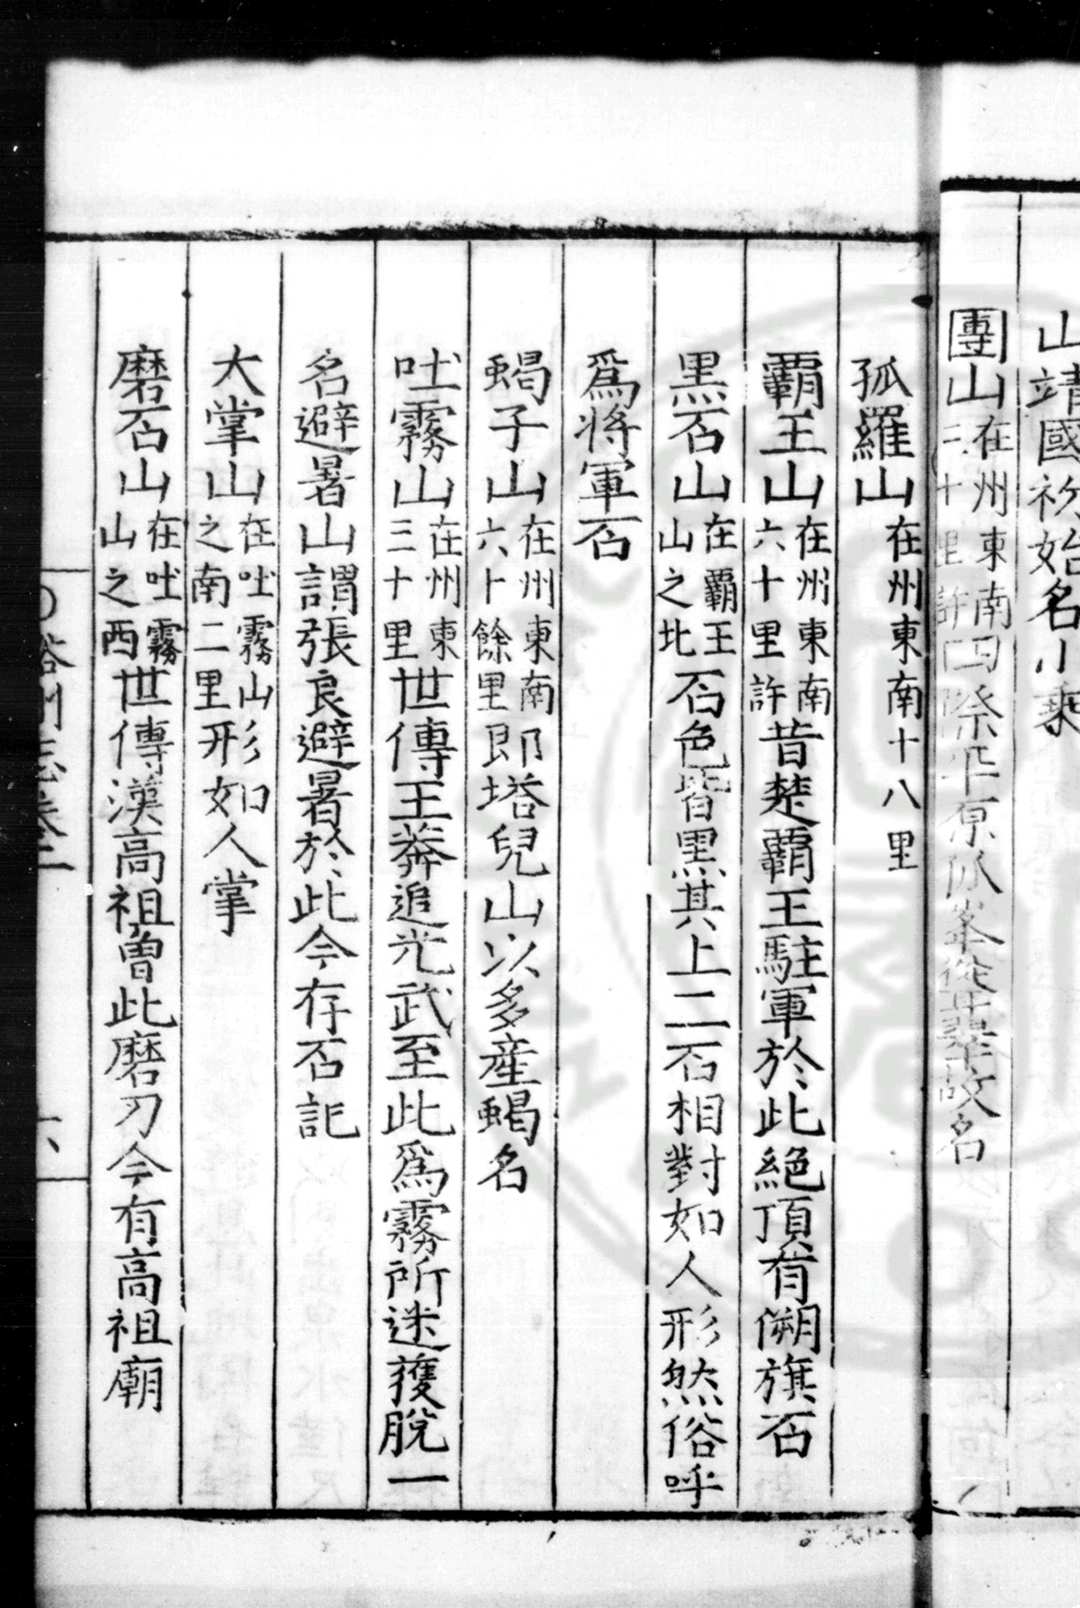 山靖國初始名小乘
團山在州東南二十里許四際平原孤峯從聳故名
孤羅山在州東南十八里
霸王山在州東南六十里許昔楚霸王駐軍於此絕頂有掤旗石
黑石山在霸王山之北石色皆黑其上二石相對如人形然俗呼
爲將軍石
蝎子山在州東南六十餘里即塔兒山以多產蝎名
吐霧山在州東三十里世傳王莽追光武至此爲霧所迷獲脫一
名避暑山謂張良避暑於此今存石記
大掌山在吐霧山之南二里形如人掌
磨石山在吐霧山之西世傳漢高祖曽此磨刃今有高祖廟
州志卷二
六